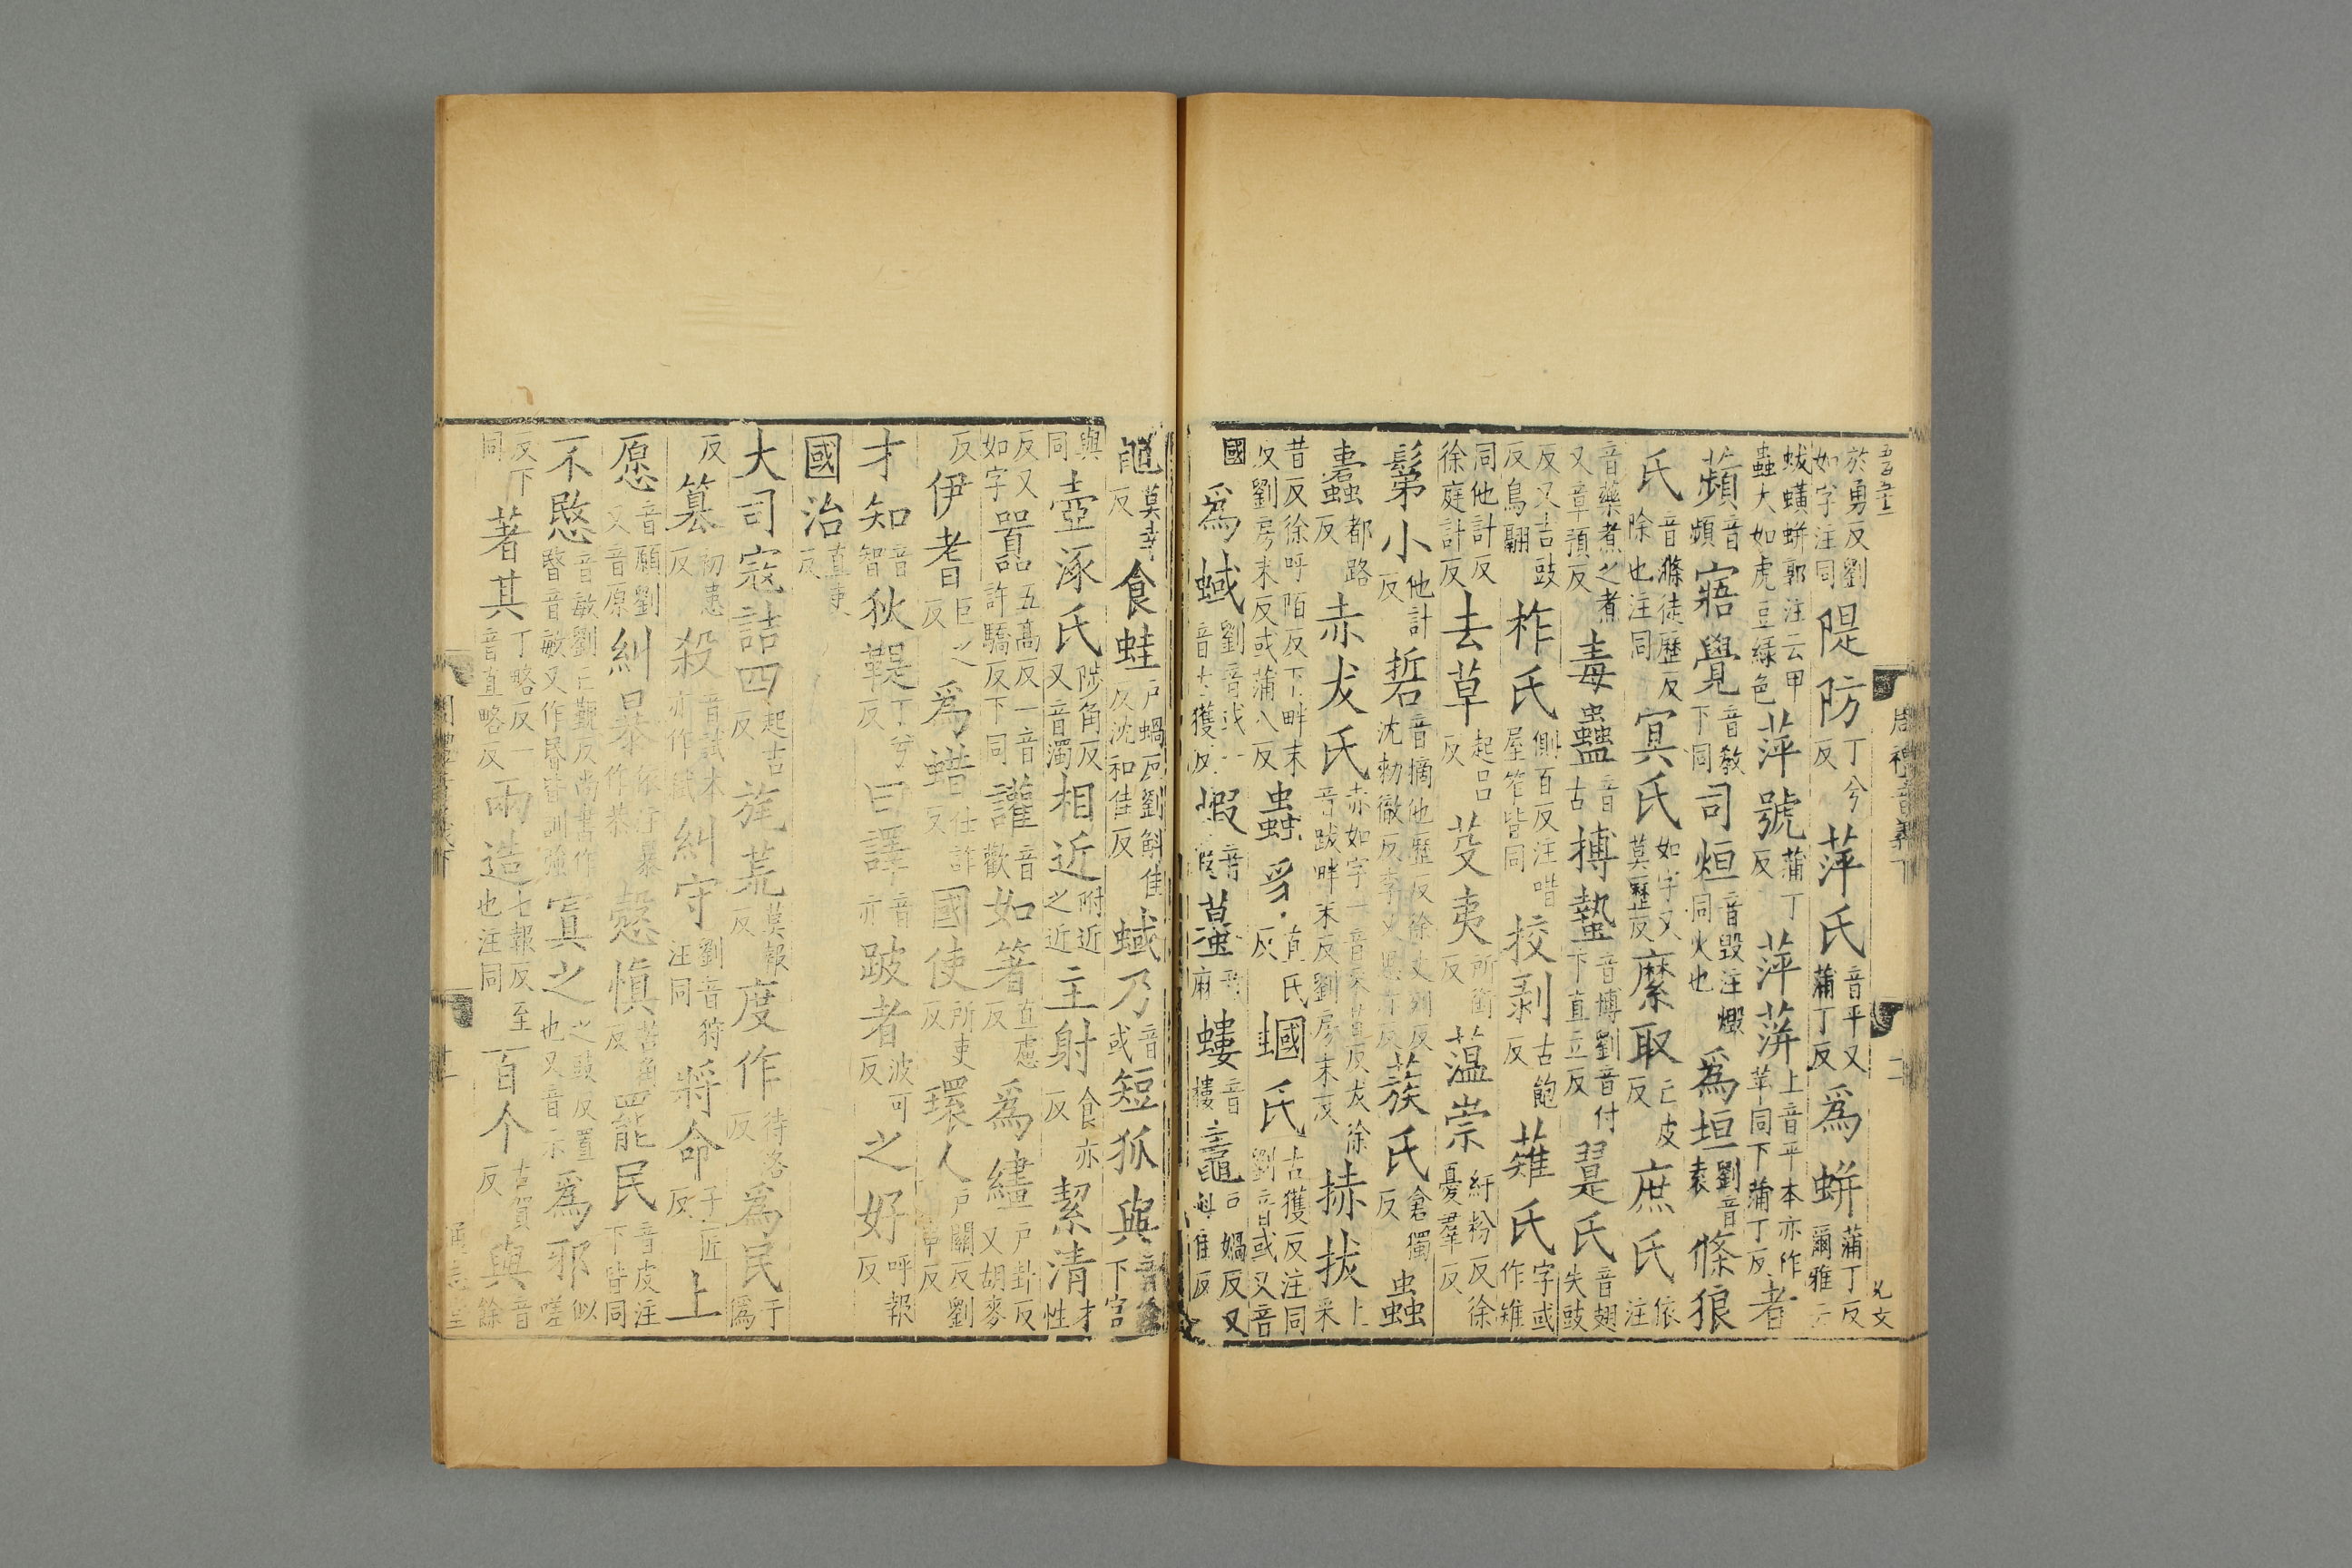 於勇反劉如字注同隄防丁兮反萍氏音平又蒲丁反爲蛢蒲丁反爾雅云
蛂蟥蛢郭注云甲蟲大如虎豆綠色萍號蒲丁反萍蓱上音平本亦作苹同下蒲丁反者
蘋音頻寤覺音教下同司烜音毀注燬同火也爲垣劉音袁條狼
氏音滌徒歷反除也注同冥氏如字又莫歷反縻取亡皮反庶氏依注
音藥煮之煮又章預反毒蠱音古搏蟄音博劉音付下直立反翨氏音翅失豉
反又吉豉反鳥翮柞氏側百反注唶屋笮皆同挍剥古飽反薙氏字或作雉
同他計反徐庭計反去草起呂反芟夷所銜反薀崇紆粉反徐憂羣反
鬀小他計反硩音摘他歷反徐丈列反沈勑徹反李又思亦反蔟氏倉獨反蟲
蠹都路反赤犮氏赤如字一音采昔反犮徐音跋畔末反劉房末反捇拔上采
昔反徐呼陌反下畔末反劉房末反或蒲八反蟲豸直氏反蟈氏古獲反注同劉音或又音
國爲蜮劉音或一音古獲反蝦音遐蟇音麻螻音樓鼃戶蝸反又斜佳反
黽莫幸反食蛙戶蝸反劉斛佳反沈和佳反蜮乃音或短狐與音餘下字
與同壺涿氏陟角反又音濁相近附近之近主射食亦反絜清才性
反又如字嚚五高反一音許驕反下同讙音歡如箸直慮反爲繣戶卦反又胡麥
反伊耆巨之反爲蜡仕詐反國使所吏反環人戶關反劉戶串反
才知音智狄鞮丁兮反曰譯音亦跛者波可反之好呼報反
國治直吏反
大司寇詰四起吉反旄荒莫報反度作待洛反爲民于爲
反篡初患反殺音試本亦作弒糾守劉音狩注同將命子匠反上
愿音願劉又音原糾暴依注暴作恭慤愼苦角反罷民音皮注下皆同
不愍音敏劉亡巾反尚書作暋音敏又作昬皆訓強寘之之豉反置也又音示爲邪似嗟
反下同著其丁略反一音直略反兩造七報反至也注同百个古賀反與音餘
周禮音義下
十一